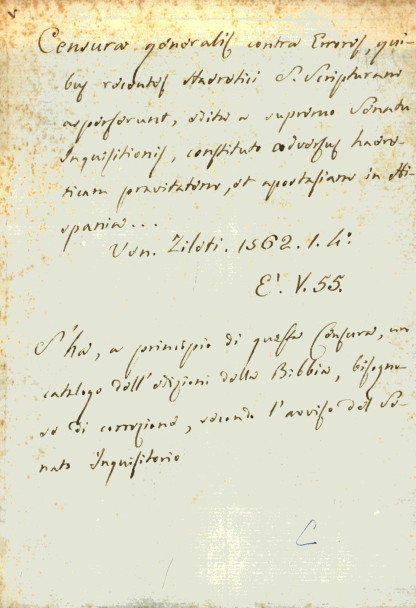 Censura generalis contra Errores, qui-
bus recentes Haeretici S. Scripturam
asperserunt, edita a supremo Senatu
Inquisitionis, constituto adversus haere-
ticam pravitatem, et apostasiam in Hi-
spania...
Ven. Zileti. 1562. 1. 4.º
E'. V. 55.
S'ha, a principio di questa Censura, un
catalogo dell'edizioni della Bibbia, bisogno-
se di correzione, secondo l'avviso del Se-
nato Inquisitorio
C